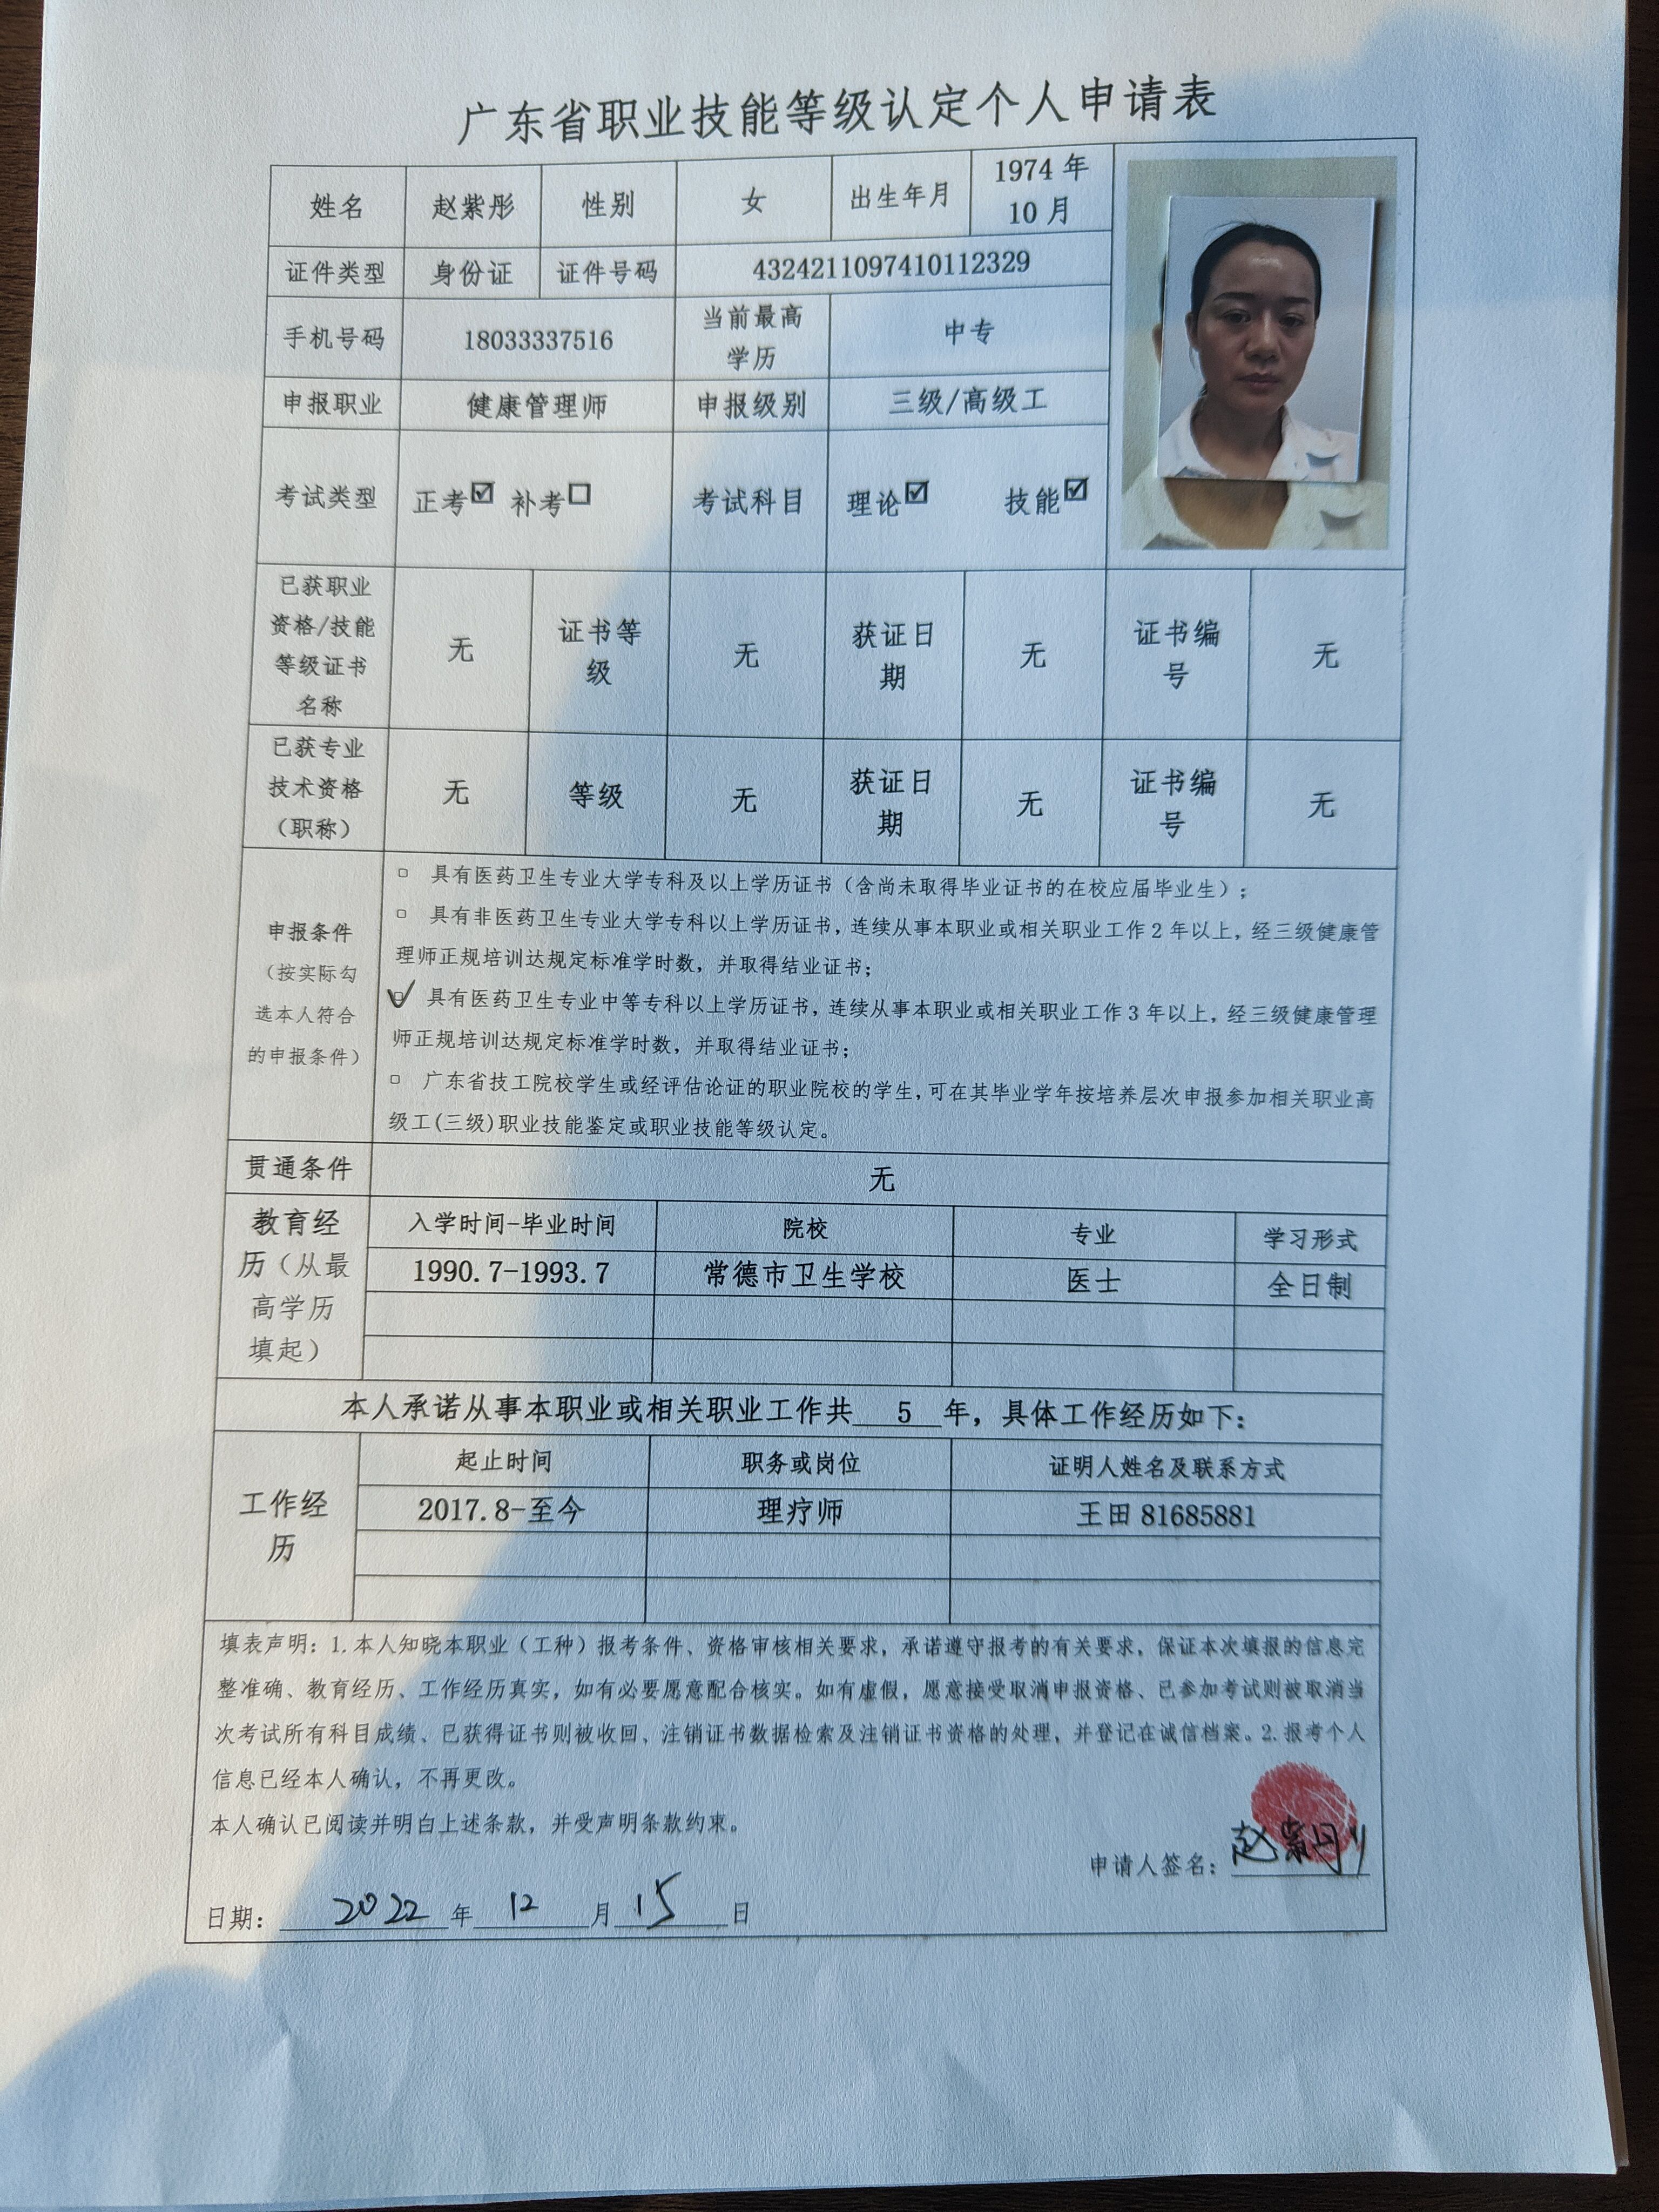 广东省职业技能等级认定个人申请表
姓名 赵紫彤 性别 女 出生年月 1974 年
10 月
证件类型 身份证 证件号码 4324211097410112329
手机号码 18033337516 当前最高
学历 中专
申报职业 健康管理师 申报级别 三级/高级工
考试类型 正考☑ 补考☐ 考试科目 理论☑ 技能☑
已获职业
资格/技能
等级证书
名称 无 证书等
级 无 获证日
期 无 证书编
号 无
已获专业
技术资格
（职称） 无 等级 无 获证日
期 无 证书编
号 无
申报条件
（按实际勾
选本人符合
的申报条件）
□ 具有医药卫生专业大学专科及以上学历证书（含尚未取得毕业证书的在校应届毕业生）；
□ 具有非医药卫生专业大学专科以上学历证书，连续从事本职业或相关职业工作 2 年以上，经三级健康管
理师正规培训达规定标准学时数，并取得结业证书；
☑ 具有医药卫生专业中等专科以上学历证书，连续从事本职业或相关职业工作 3 年以上，经三级健康管理
师正规培训达规定标准学时数，并取得结业证书；
□ 广东省技工院校学生或经评估论证的职业院校的学生，可在其毕业学年按培养层次申报参加相关职业高
级工(三级)职业技能鉴定或职业技能等级认定。
贯通条件 无
教育经
历（从最
高学历
填起）
入学时间-毕业时间 院校 专业 学习形式
1990.7-1993.7 常德市卫生学校 医士 全日制
本人承诺从事本职业或相关职业工作共 5 年，具体工作经历如下：
工作经
历
起止时间 职务或岗位 证明人姓名及联系方式
2017.8-至今 理疗师 王田 81685881
填表声明：1.本人知晓本职业（工种）报考条件、资格审核相关要求，承诺遵守报考的有关要求，保证本次填报的信息完
整准确、教育经历、工作经历真实，如有必要愿意配合核实。如有虚假，愿意接受取消申报资格、已参加考试则被取消当
次考试所有科目成绩、已获得证书则被收回、注销证书数据检索及注销证书资格的处理，并登记在诚信档案。2.报考个人
信息已经本人确认，不再更改。
本人确认已阅读并明白上述条款，并受声明条款约束。
申请人签名：赵紫彤
日期： 2022 年 12 月 15 日